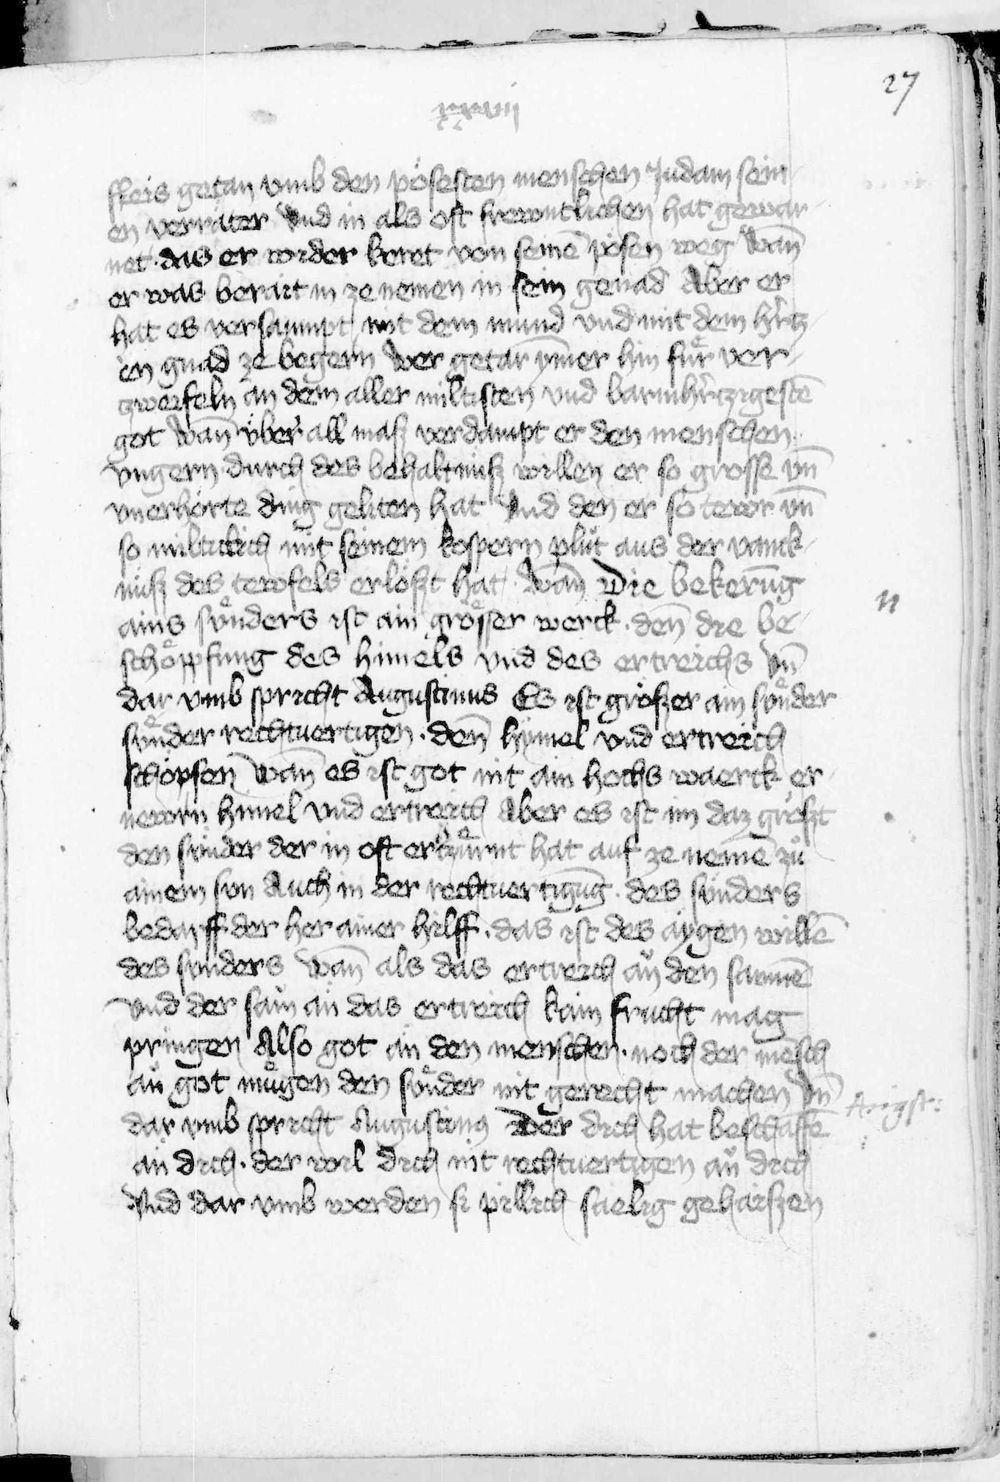 27
xxvii
fleis getan vmb den pösesten menschen Judam sein-
en verräter Vnd in als oft frewntlichen hat gewar-
net · das er wider keret von seinē pösen weg Wan̄
er was berait in ze nemen in sein genad Aber er
hat es versaumpt mit dem mund vnd mit dem hrͤtz-
en gnad ze begern Wer getar ym̄er hin fuͤr ver-
zweifeln an dem aller miltisten vnd barmhrͤtzigestē
got Wan̄ über all masz verdampt er den menschen
vngern durch des behaltnusz willen er so grosse vn̄
vnerhörte ding geliten hat Vnd den er so tewr vn̄
so miltiklich mit seinem kospern pluͤt aus der vanck-
nusz des tewfels erlöszt hat · Wan̄ Die bekerūg
ains suͤnders ist ain groͤsser werck · den̄ die be-
schoͤpfung des himels vnd des ertreichs Vn̄
dar vmb spricht Augustinus Es ist gröszer ain suͤnder
suͤnder rechtuertigen · den̄ hymel vnd ertreich
schöpfen Wan̄ es ist got nit ain hochs waerck er-
newrn himel vnd ertreich Aber es ist im daz gröszt
den sünder der in oft ertzuͤrnt hat auf ze nemē zuͦ
ainem sun Auch in der rechtuertigūg · des sünders
bedarff der her ainer hilff · das ist des aygen willē
des sünders Wan̄ als das ertreich an den samnē
vnd der sam an das ertreich kain frucht mag
pringen Also got an den menschen · noch der mēsch
an got muͤgen den suͤnder nit gerecht machen Vn̄
dar vmb spricht Augustinus Der dich hat beschaffē
an dich · der wil dich nit rechtuertigen an dich
Vnd dar vmb werden si pillich saelig gehaiszen
n
Augst: